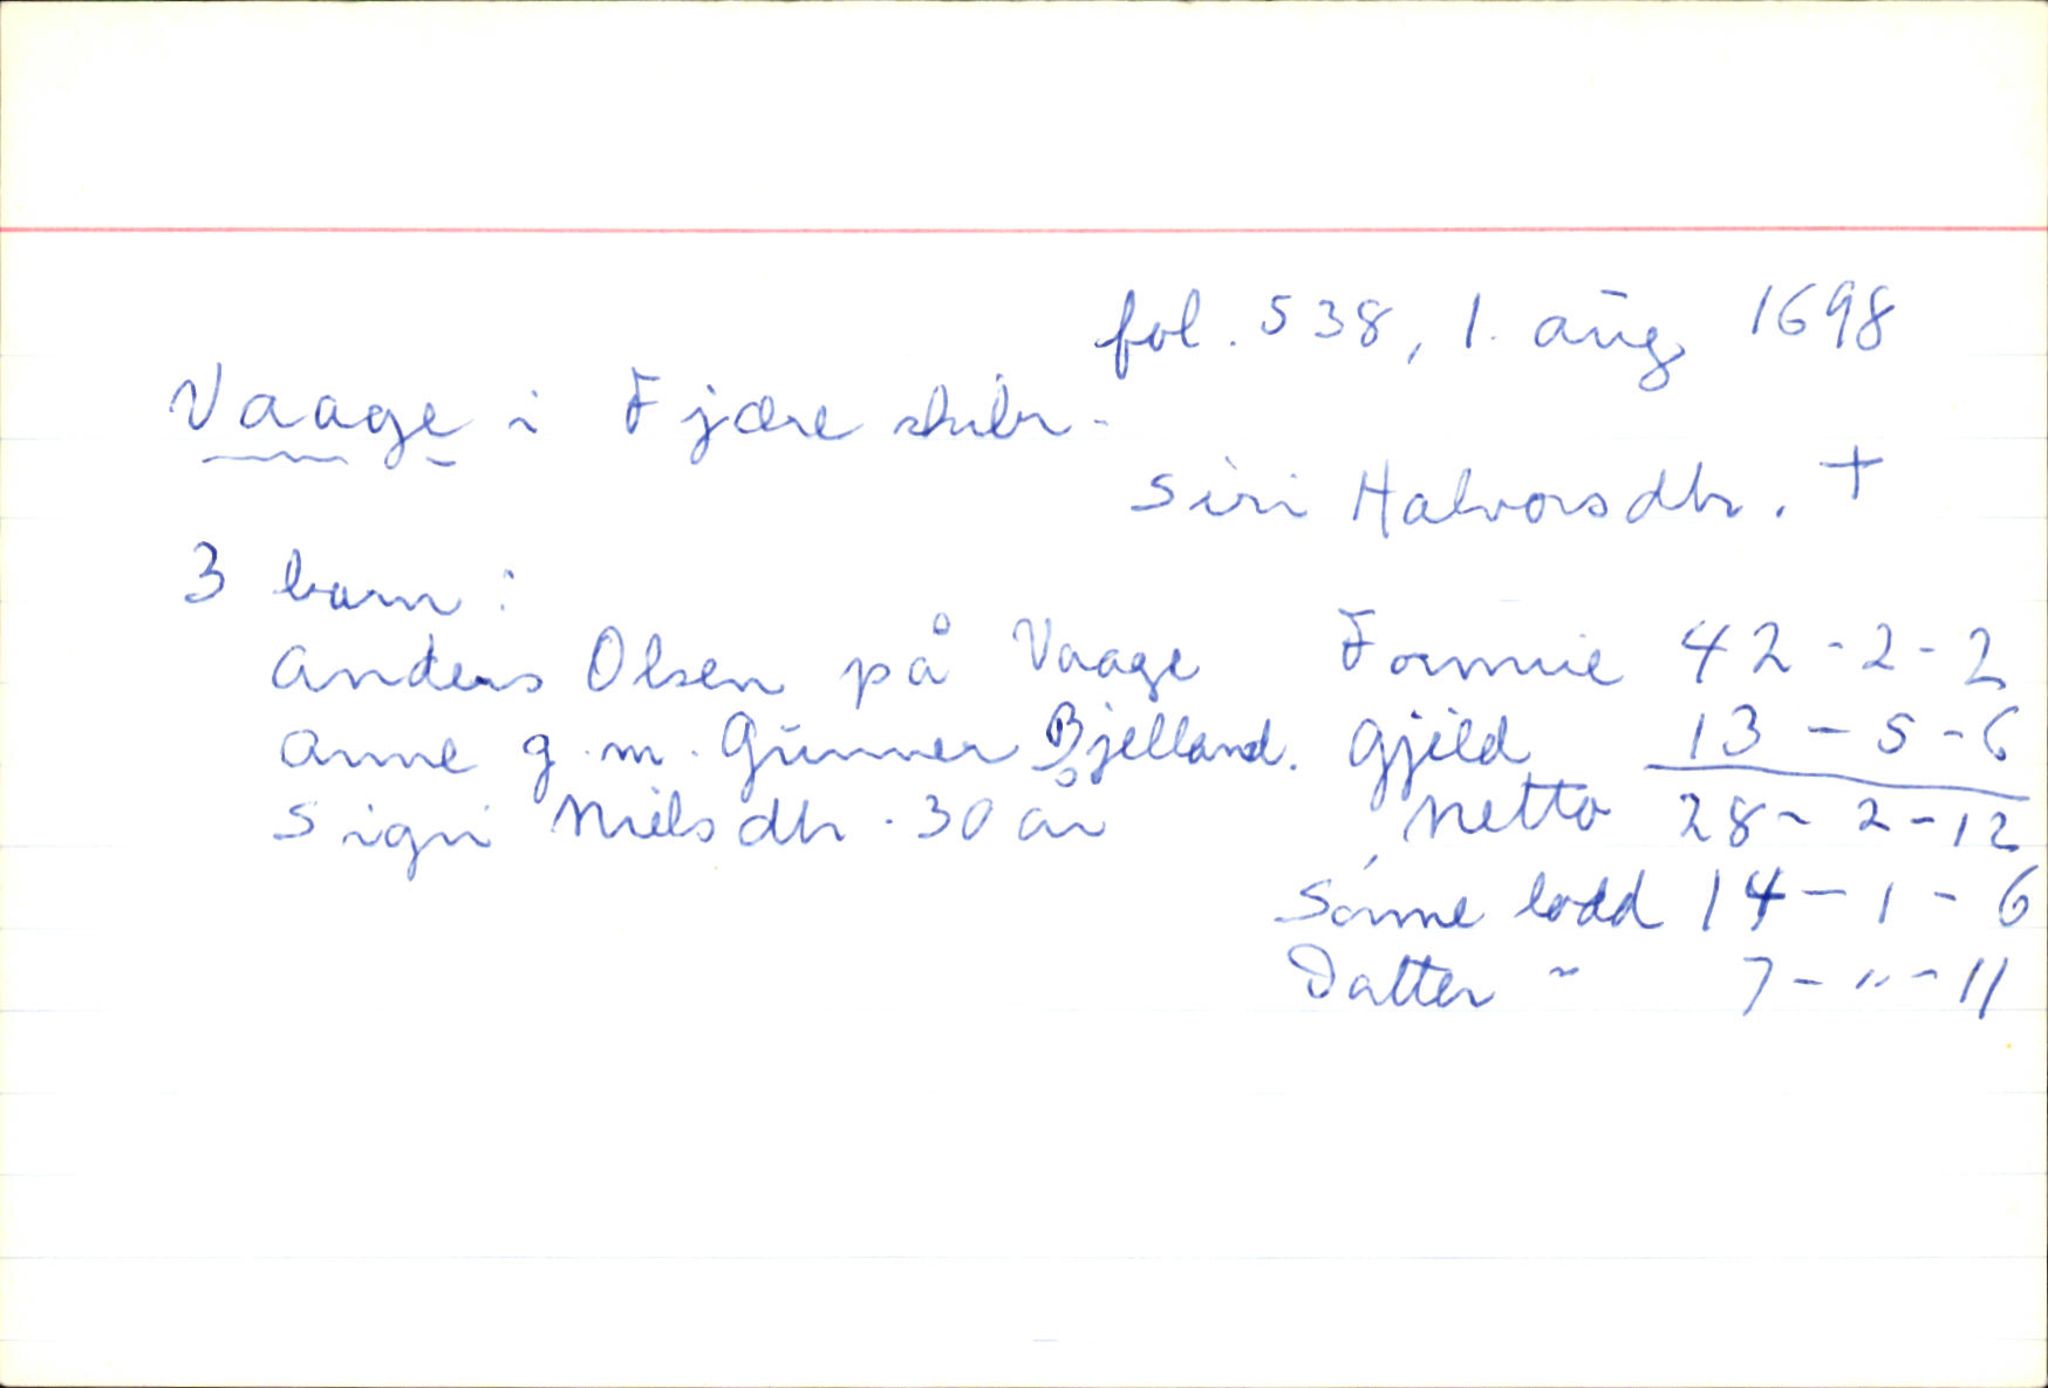 fol. 538, 1. aug 1698
Vaage i Fjære skibr.
Siri Halvorsdtr. +
3 barn:
Anders Olsen på Vaage Formue 42-2-2
Anne g.m. Gunner Bjelland. Gjeld 13-5-6
Signi Nielsdtr. 30 år Netto 28-2-12
Sønne lodd 14-1-6
Datter " 7-"-11